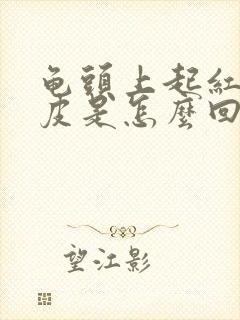 龟頭上起紅
皮是怎麼回
望江影